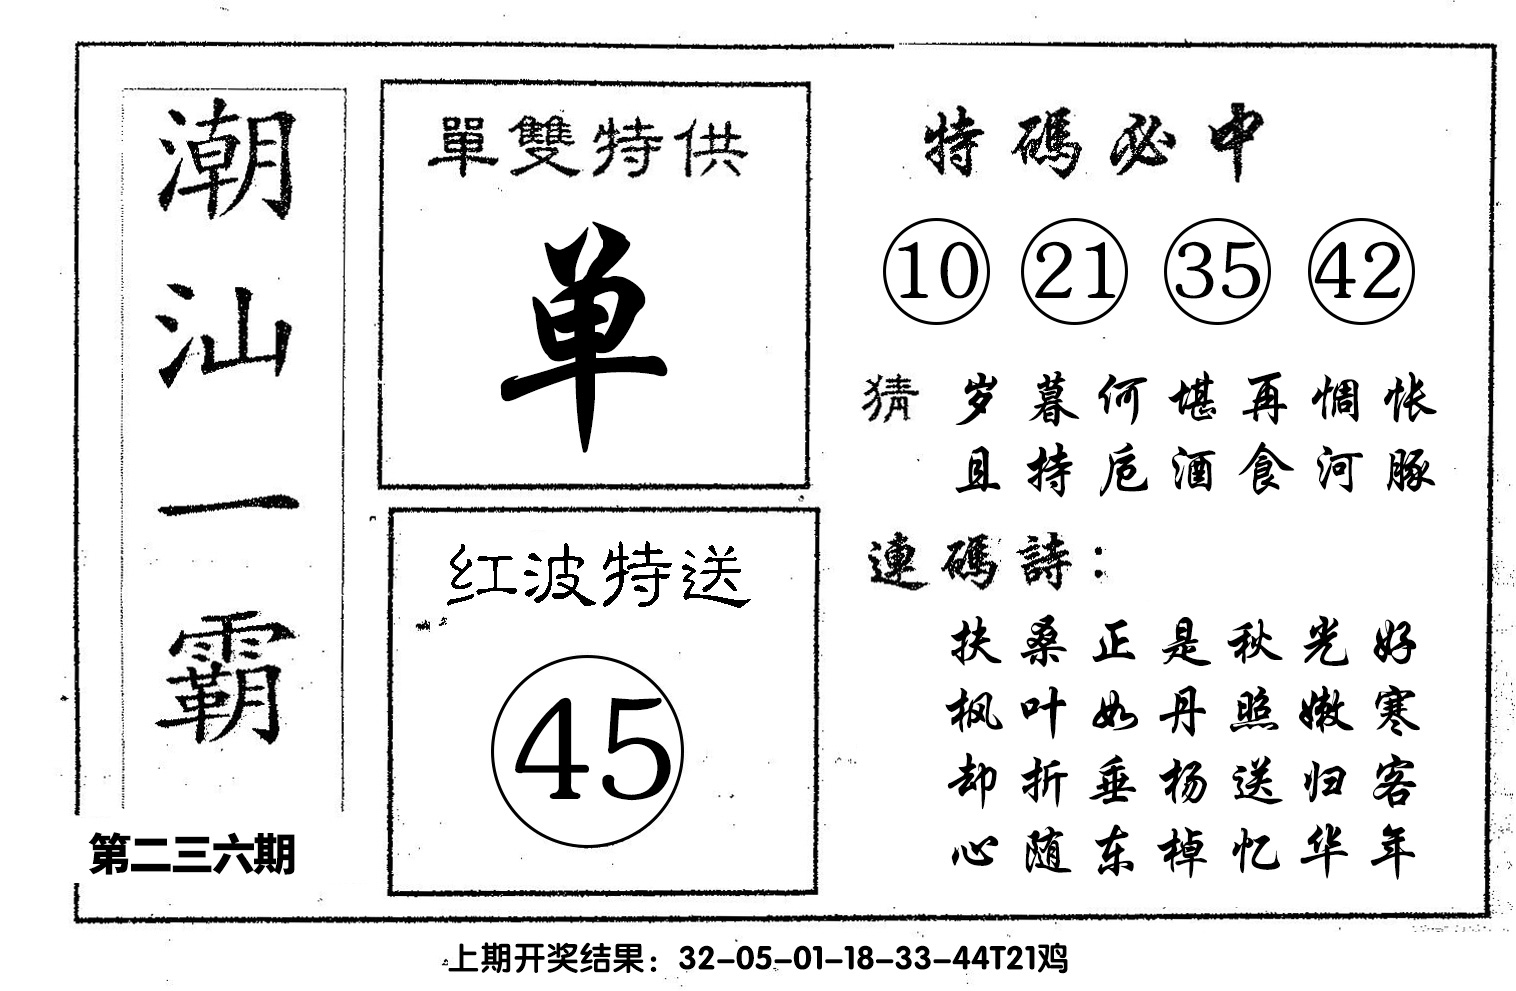 潮汕一霸
第二三六期
單雙特供
单
红波特送
45
特碼必中
10 21 35 42
猜 岁暮何堪再惆怅
且持卮酒食河豚
連碼詩：
扶桑正是秋光好
枫叶如丹照嫩寒
却折垂杨送归客
心随东棹忆华年
上期开奖结果：32-05-01-18-33-44T21鸡